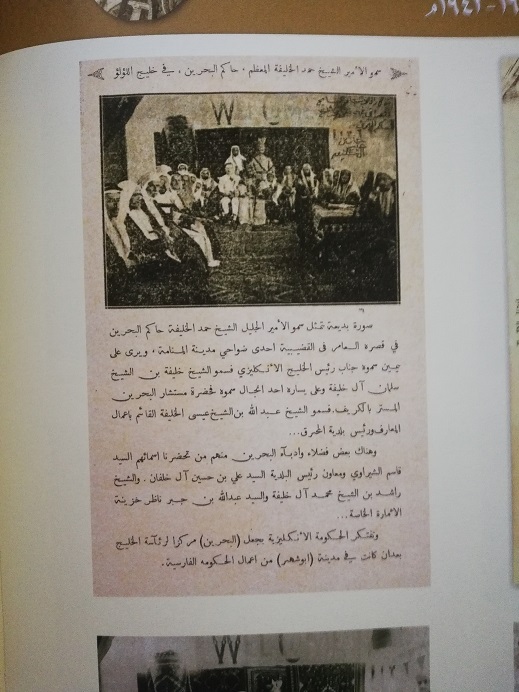 ١٩٤١م
سمو الأمير الشيخ حمد الخليفة المعظم ، حاكم البحرين ، في خليج اللؤلؤ
W
صورة بديعة تمثل سمو الأمير الجليل الشيخ حمد الخليفة حاكم البحرين
في قصره العامر في القضيبية احدى ضواحي مدينة المنامة ، ويرى على
يمين سموه جناب رئيس الخليج الانكليزي فسمو الشيخ خليفة بن الشيخ
سلمان آل خليفة وعلى يساره احد انجال سموه فحضرة مستشار البحرين
المستر باكريف. فسمو الشيخ عبد الله بن الشيخ عيسى الخليفة القائم باعمال
المعارف ورئيس بلدية المحرق...
وهناك بعض فضلاء وادباء البحرين منهم من تحضرنا اسمائهم السيد
قاسم الشيراوي ومعاون رئيس البلدية السيد علي بن حسين آل خلفان . والشيخ
راشد بن الشيخ محمد آل خليفة والسيد عبدالله بن جبر ناظر خزينة
الامارة الخاصة...
وتفتكر الحكومة الانكليزية بجعل (البحرين) مركزا لرئآسة الخليج
بعدان كانت في مدينة (ابوشهر) من اعمال الحكومه الفارسية.
W